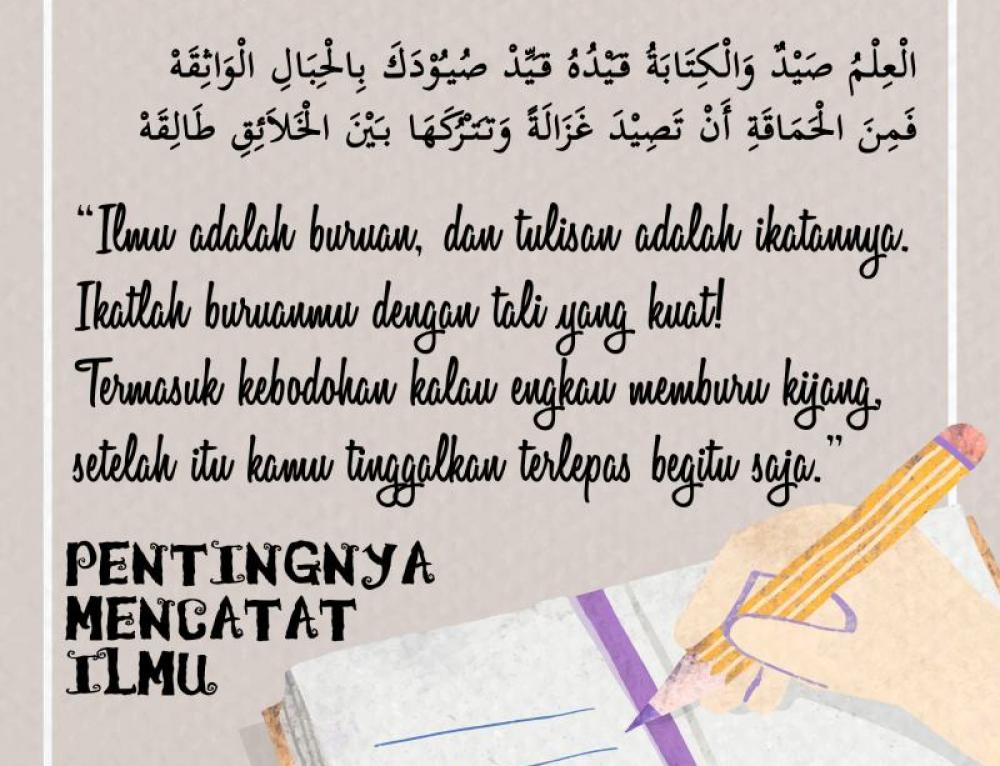 الْعِلْمُ صَيْدٌ وَالْكِتَابَةُ قَيْدُهُ قَيِّدْ صُيُوْدَكَ بِالْحِبَالِ الْوَاثِقَهْ
فَمِنَ الْحَمَاقَةِ أَنْ تَصِيْدَ غَزَالَةً وَتَتْرُكَهَا بَيْنَ الْخَلاَئِقِ طَالِقَهْ
“Ilmu adalah buruan, dan tulisan adalah ikatannya.
Ikatlah buruanmu dengan tali yang kuat!
Termasuk kebodohan kalau engkau memburu kijang,
setelah itu kamu tinggalkan terlepas begitu saja.”
PENTINGNYA
MENCATAT
ILMU